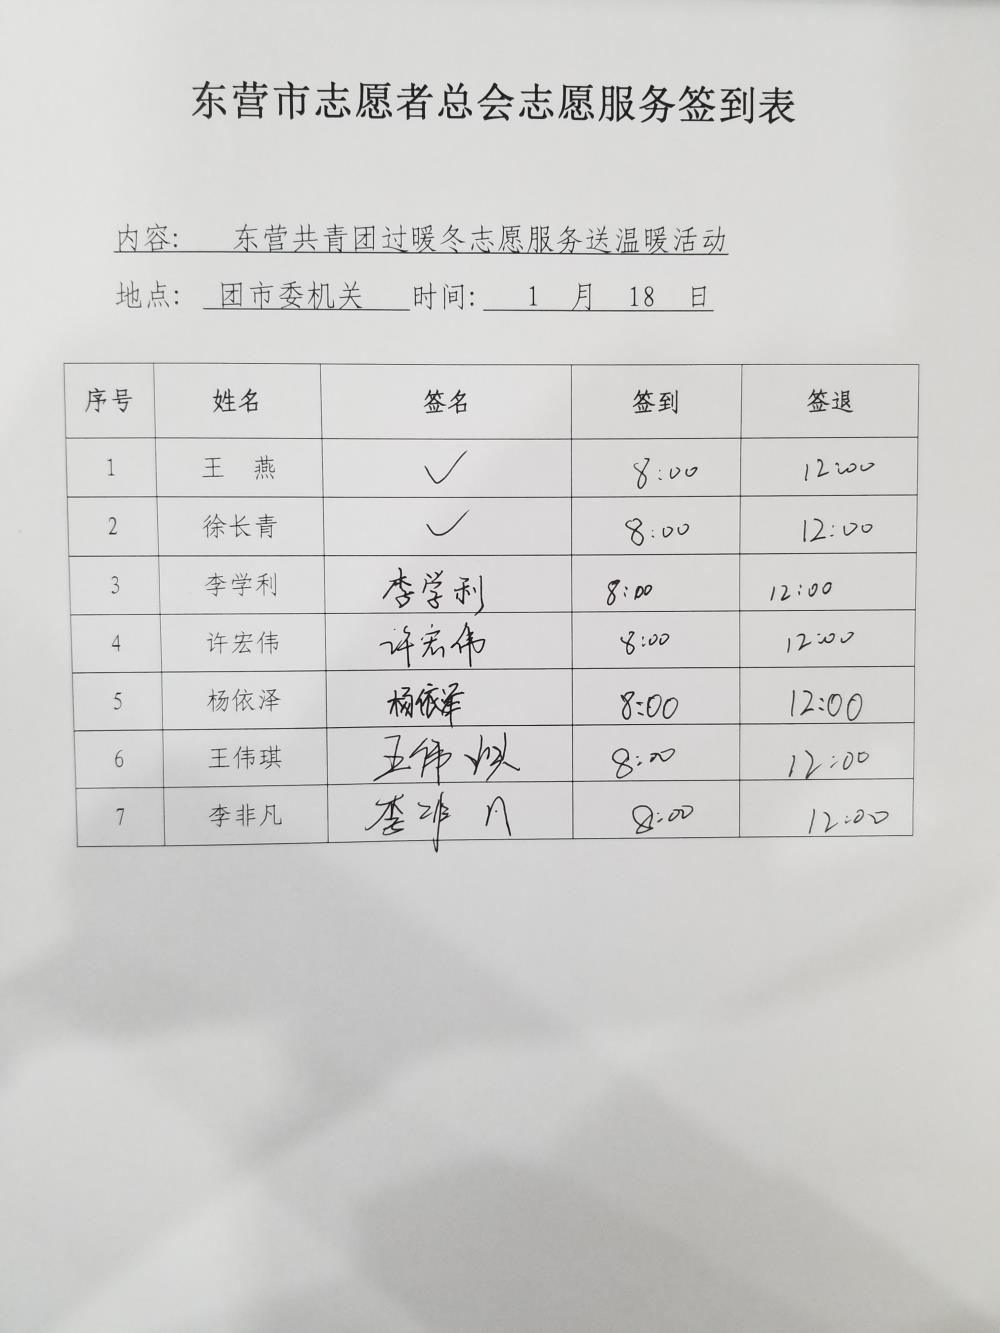 东营市志愿者总会志愿服务签到表
内容: 东营共青团过暖冬志愿服务送温暖活动
地点: 团市委机关 时间: 1 月 18 日
序号 姓名 签名 签到 签退
1 王 燕 ✓ 8:00 12:00
2 徐长青 ✓ 8:00 12:00
3 李学利 李学利 8:00 12:00
4 许宏伟 许宏伟 8:00 12:00
5 杨依泽 杨依泽 8:00 12:00
6 王伟琪 王伟琪 8:00 12:00
7 李非凡 李非凡 8:00 12:00